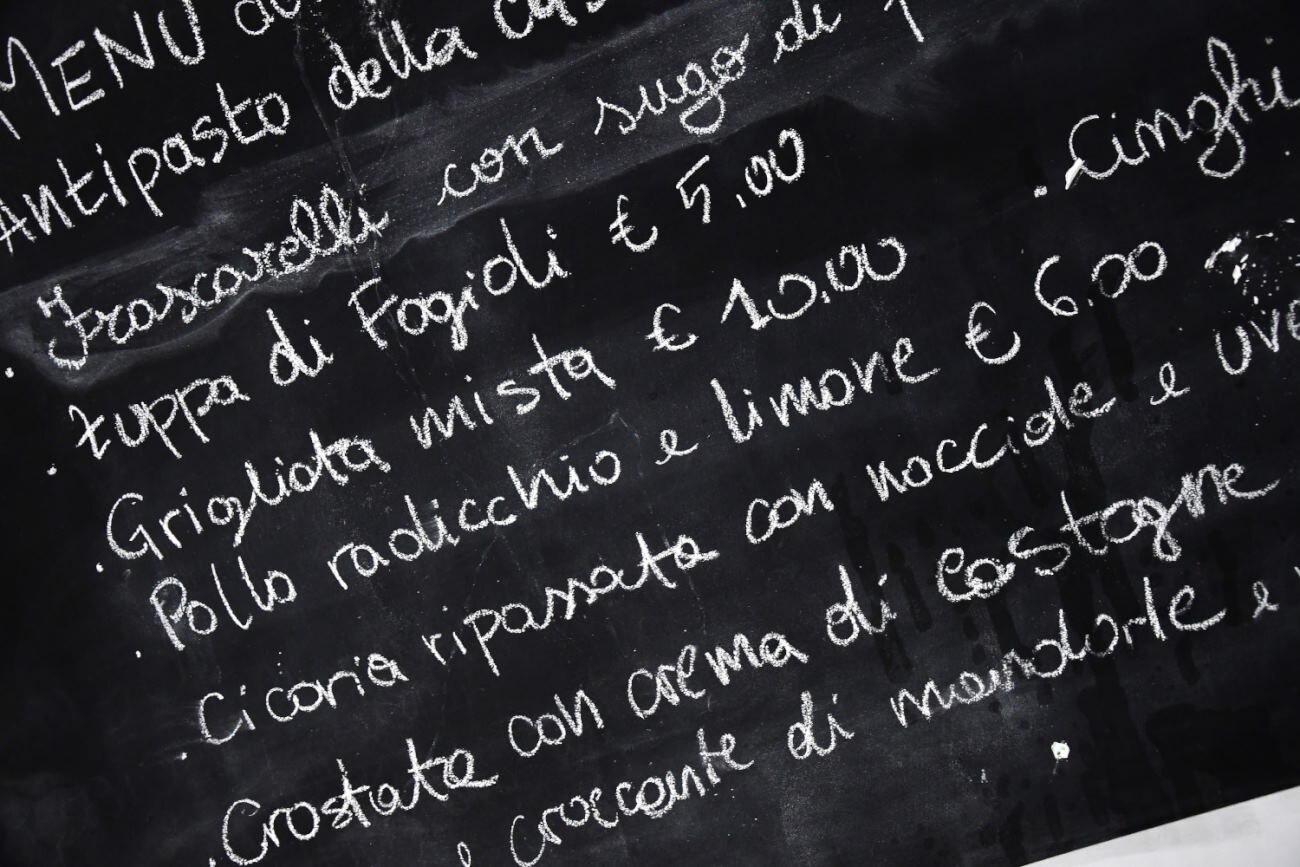 MENU
Antipasto della
· Frascarelli con sugo di
· zuppa di Fagioli € 5,00
· Grigliata mista € 10.00 · Cinghi
· Pollo radicchio e limone € 6.00
· Cicoria ripassata con nocciole e
· Crostata con crema di castagne
croccante di mandorle e